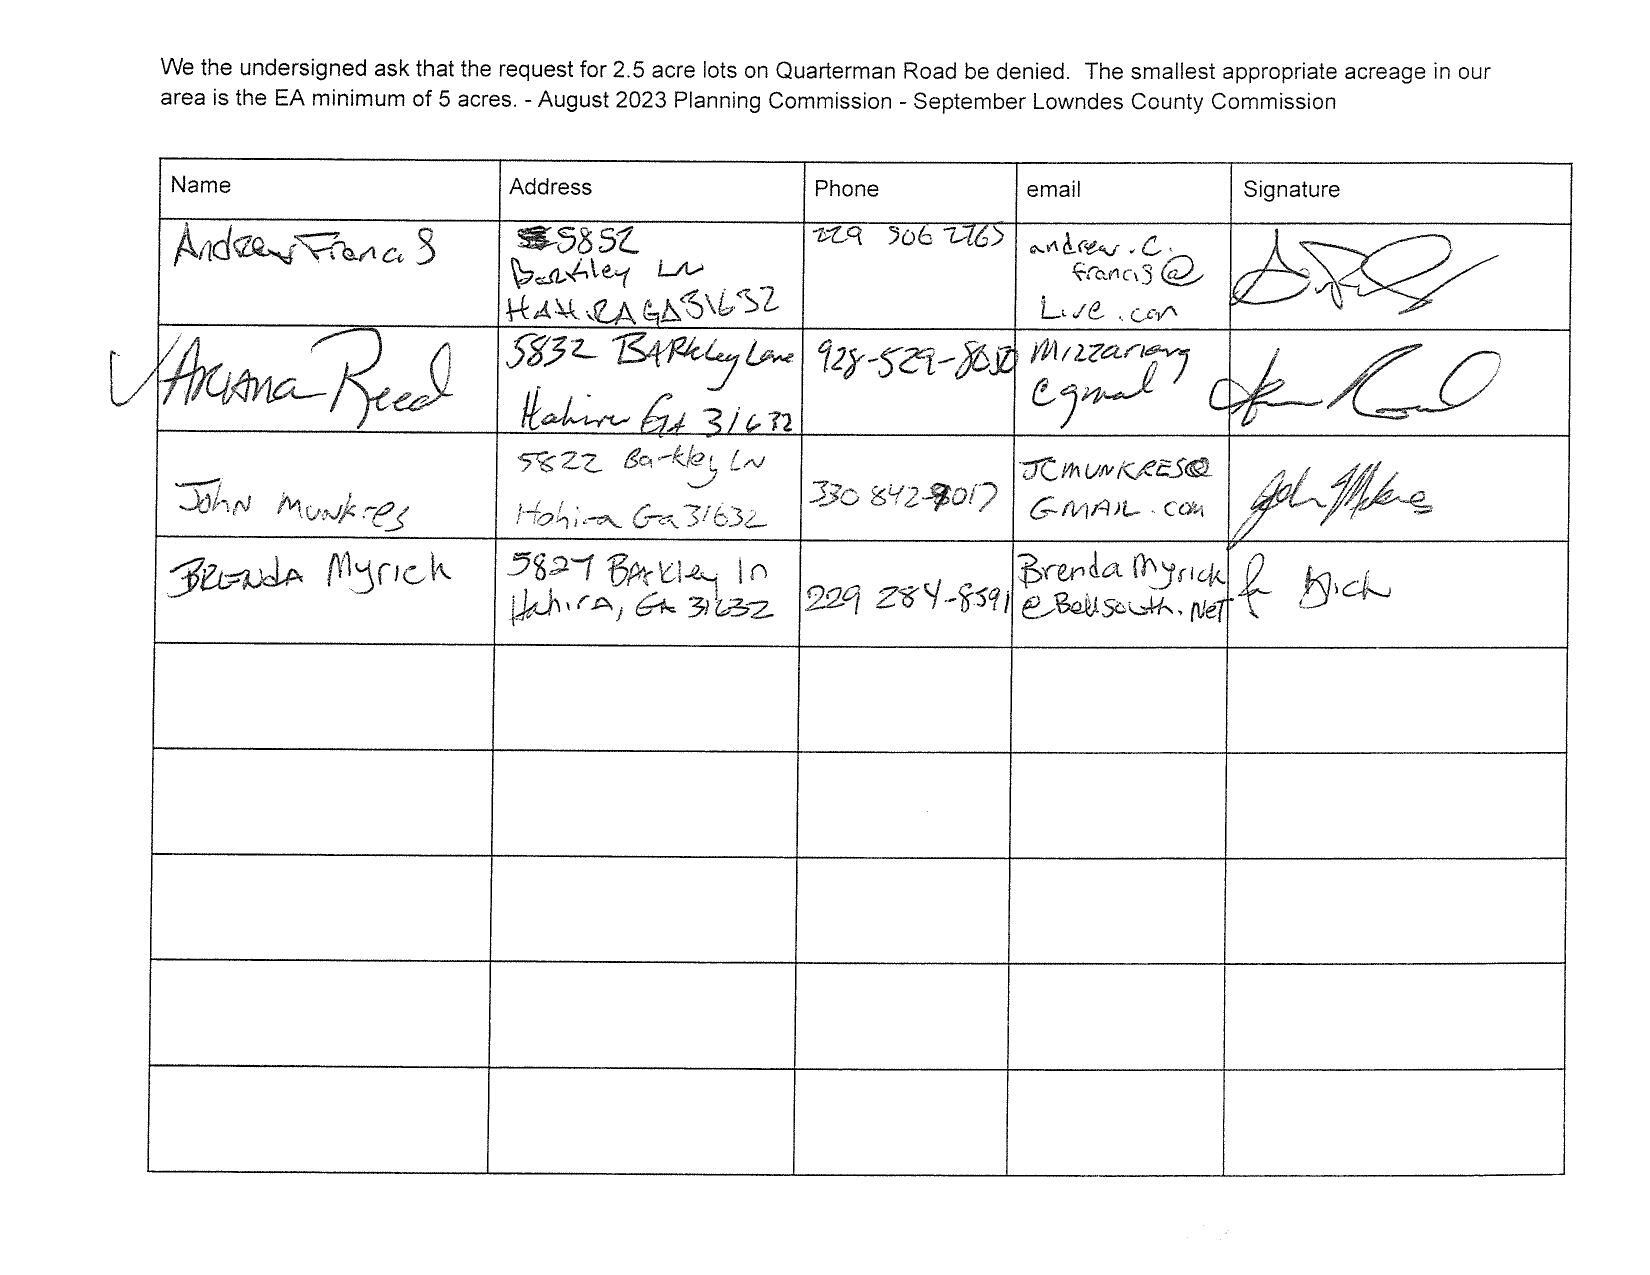 We the undersigned ask that the request for 2.5 acre lots on Quarterman Road be denied. The smallest appropriate acreage in our
area is the EA minimum of 5 acres. - August 2023 Planning Commission - September Lowndes County Commission
Name Address Phone email Signature
Andrew Francis
5852
Barkley LN
HAHIRA GA 31632
229 506 2765
andrew.c.
francis@
Live.com
Ariana Reed
5832 BARkley Lane
Hahira GA 31632
928-529-8030
Mizzariang
@gmail
John Munkres
5822 Barkley LN
Hahira Ga 31632
330 842-8017
JCMUNKRES@
GMAIL.COM
John Munkres
BRENDA Myrick
5827 BArkley ln
HahirA, GA 31632
229 284-8591
Brenda Myrick
@Bellsouth.NET